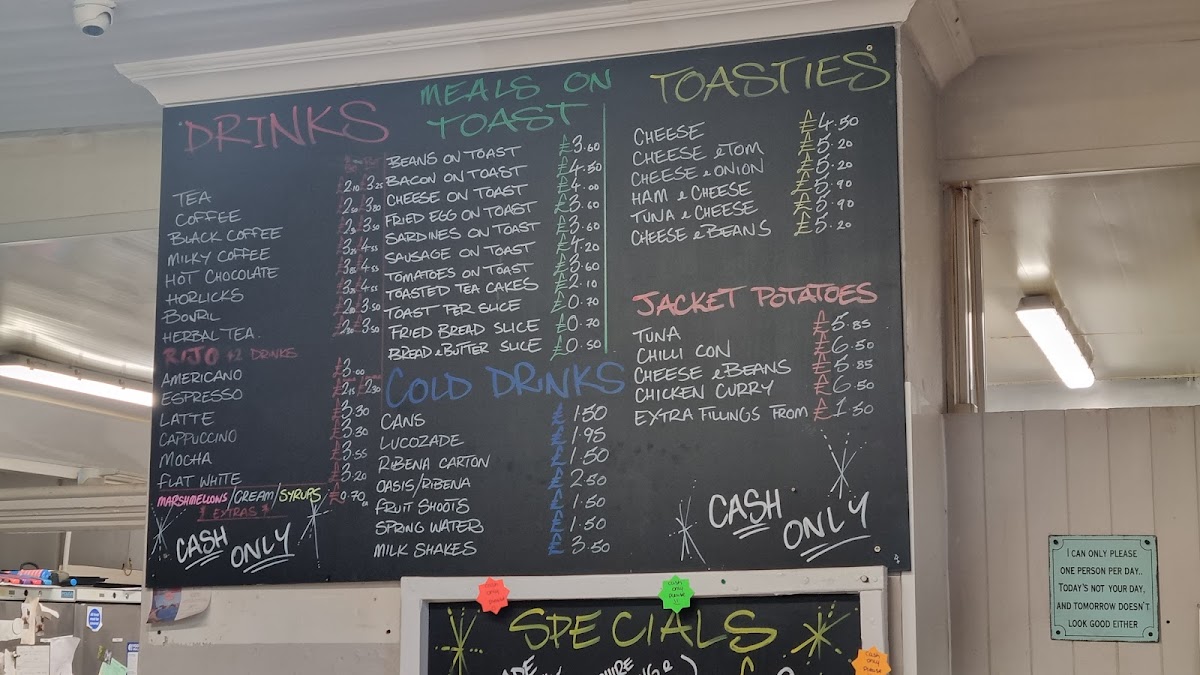 DRINKS
TEA £2.10 £3.25
COFFEE £3.80
BLACK COFFEE £3.50
MILKY COFFEE £4.55
HOT CHOCOLATE £4.55
HORLICKS £4.55
BOVRIL £3.50
HERBAL TEA. £3.50
RIJO 42 DRINKS
AMERICANO £3.00
ESPRESSO £2.15 £2.30
LATTE £3.30
CAPPUCCINO £3.30
MOCHA £3.55
FLAT WHITE £3.20
MARSHMELLOWS/CREAM/SYRUPS £0.70
EXTRAS
CASH ONLY
MEALS ON
TOAST
BEANS ON TOAST £3.60
BACON ON TOAST £4.50
CHEESE ON TOAST £4.00
FRIED EGG ON TOAST £3.60
SARDINES ON TOAST £3.60
SAUSAGE ON TOAST £4.20
TOMATOES ON TOAST £3.60
TOASTED TEA CAKES £2.10
TOAST PER SLICE £0.70
FRIED BREAD SLICE £0.70
BREAD & BUTTER SLICE £0.50
COLD DRINKS
CANS £1.50
LUCOZADE £1.95
RIBENA CARTON £1.50
OASIS/RIBENA £2.50
FRUIT SHOOTS £1.50
SPRING WATER £1.50
MILK SHAKES £3.50
TOASTIES
CHEESE £4.50
CHEESE & TOM £5.20
CHEESE & ONION £5.20
HAM & CHEESE £5.90
TUNA & CHEESE £5.90
CHEESE & BEANS £5.20
JACKET POTATOES
TUNA £5.85
CHILLI CON £6.50
CHEESE & BEANS £5.85
CHICKEN CURRY £6.50
EXTRA FILLINGS FROM £1.50
CASH ONLY
CASH
ONLY
PLEASE
CASH
ONLY
PLEASE
SPECIALS
CASH
ONLY
PLEASE
I CAN ONLY PLEASE
ONE PERSON PER DAY..
TODAY'S NOT YOUR DAY,
AND TOMORROW DOESN'T
LOOK GOOD EITHER